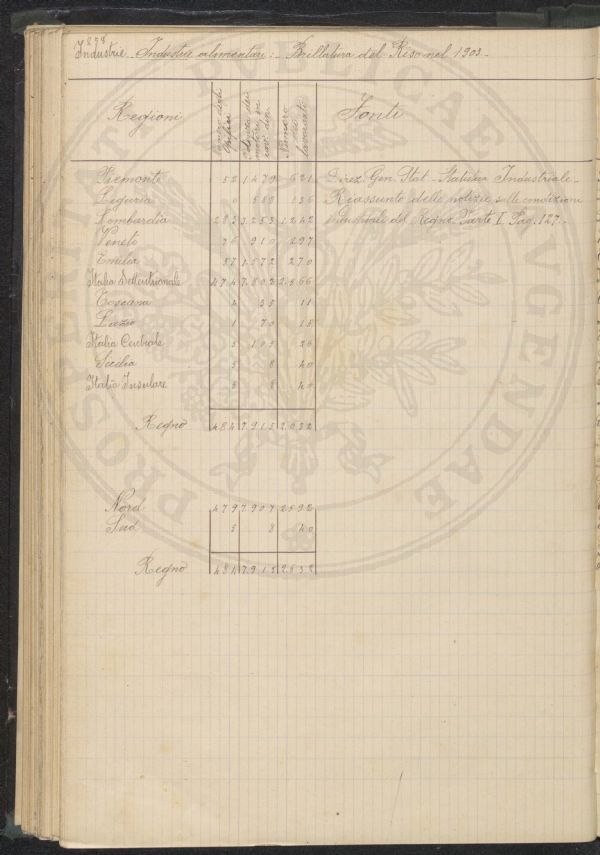 878
Industrie - Industrie alimentari: - Brillatura del Riso nel 1903 -
Regioni Numero degli Opifici Potenza dei motori in cav. din. Numero dei lavoranti Fonti
Piemonte 52 1479 621 Direz. Gen. Stat. - Statistica Industriale -
Liguria 6 588 136 Riassunto delle notizie sulle condizioni
Lombardia 283 3253 1242 industriali del Regno Parte I Pag. 127 -
Veneto 76 910 297
Emilia 57 1572 270
Italia Settentrionale 474 7802 2566
Toscana 4 35 11
Lazio 1 70 15
Italia Centrale 5 105 26
Sicilia 5 8 40
Italia Insulare 5 8 40
Regno 484 7915 2632
Nord 479 7907 2592
Sud 5 8 40
Regno 484 7915 2632
PROSPERITATI PUBLICAE AUGENDAE